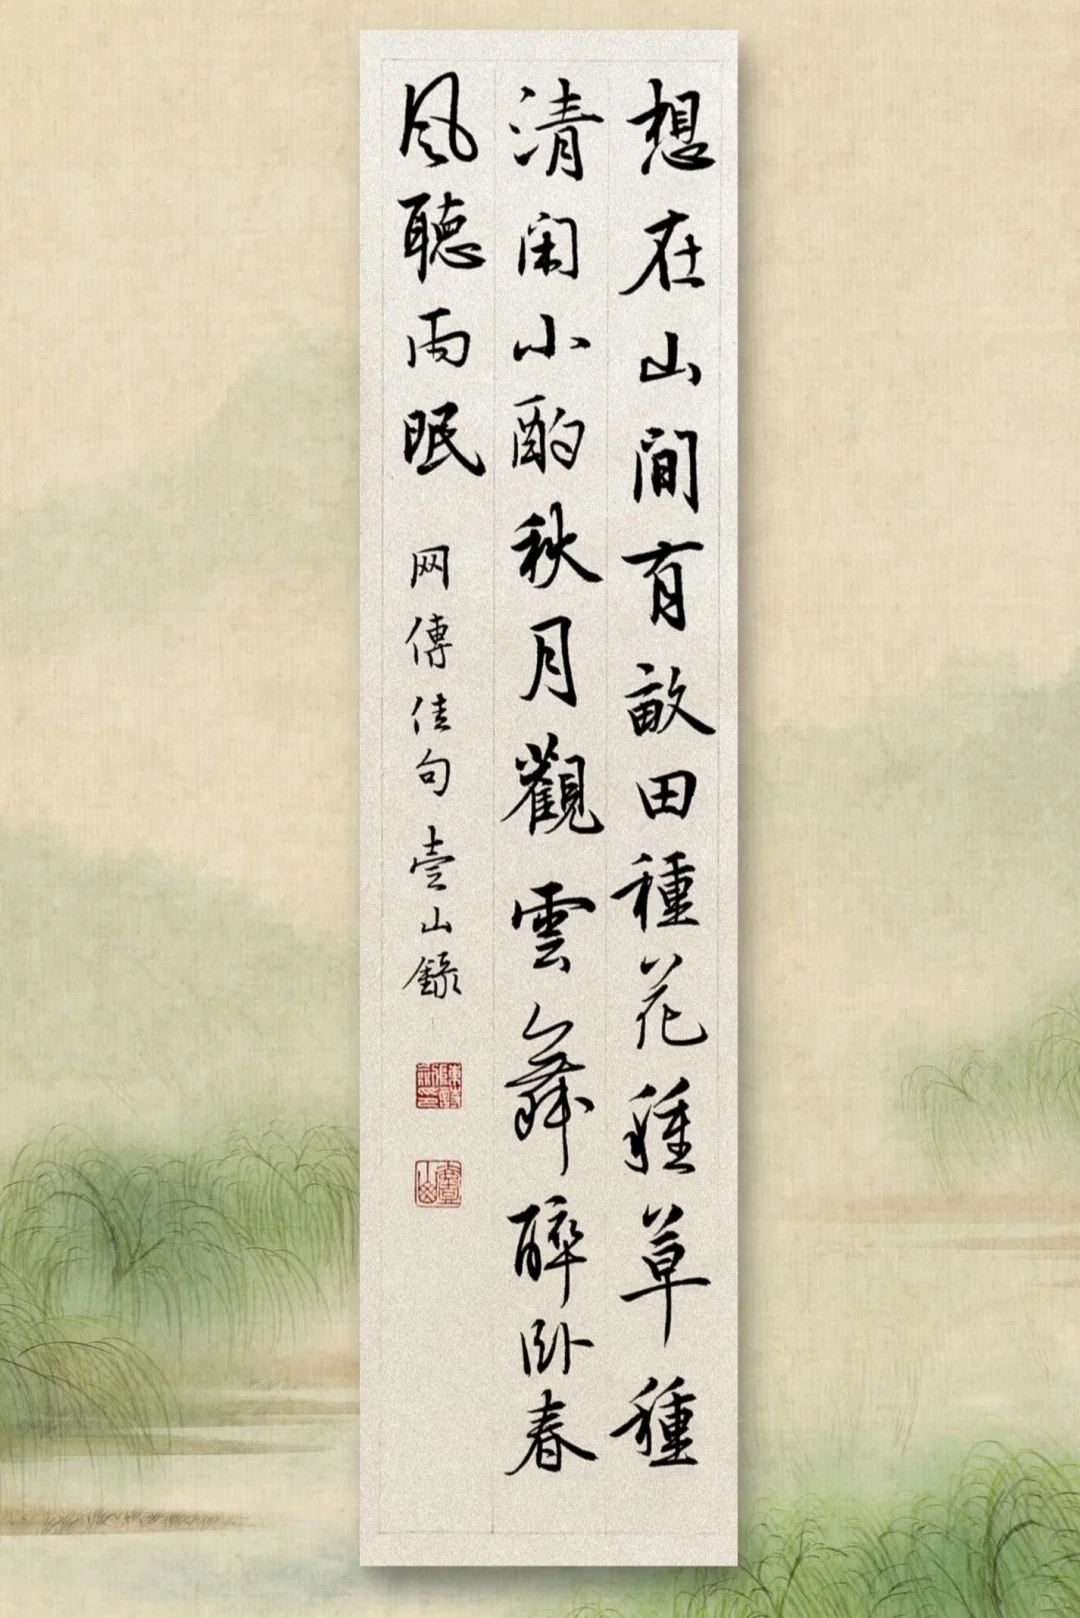 想在山間有畝田種花種草種
清闲小酌秋月觀雲舞醉卧春
風聽雨眠
网傳佳句壹山錄